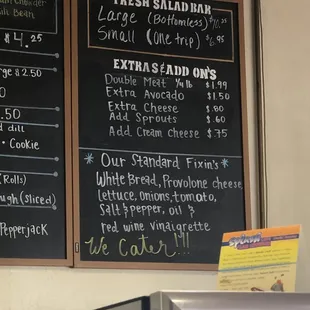 n Chowder
ili Bean
$ 4.25
rge $2.50
.50
d dill
• Cookie
(Rolls)
ough (sliced)
Pepperjack
FRESH SALAD BAR
Large (Bottomless)
Small (One trip) $6.95
EXTRAS & ADD ON'S
Double Meat 1/4 lb $1.99
Extra Avocado $1.50
Extra Cheese $.80
Add Sprouts $.60
Add Cream Cheese $.75
* Our Standard Fixin's *
White Bread, Provolone cheese
lettuce, onions, tomato,
salt & pepper, oil &
red wine vinaigrette
We Cater!!!
SPLASH